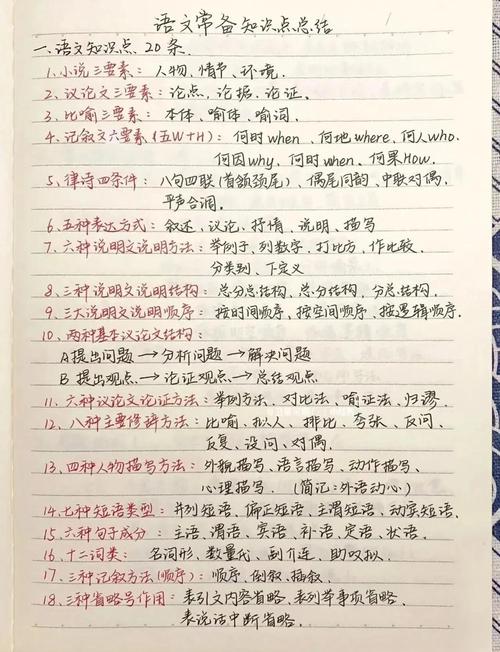 语文常备知识点总结
一.语文知识点 20条.
1.小说三要素：人物、情节、环境.
2.议论文三要素：论点、论据、论证.
3.比喻三要素：本体、喻体、喻词.
4.记叙文六要素(五W+H)：何时when、何地where、何人who.
何因why、何时when、何果How.
5.律诗四条件：八句四联(首颔颈尾)、偶尾同韵、中联对偶、
平声合调.
6.五种表达方式：叙述、议论、抒情、说明、描写
7.六种说明文说明方法：举例子、列数字、打比方、作比较、
分类别、下定义
8.三种说明文说明结构：总分总结构、总分结构、分总结构.
9.三大说明文说明顺序：按时间顺序、按空间顺序、按逻辑顺序.
10.两种基本议论文结构：
A提出问题→分析问题→解决问题
B 提出观点→论证观点→总结观点
11.六种议论文论证方法：举例方法、对比法、喻证法、归谬.
12.八种主要修辞方法：比喻、拟人、排比、夸张、反问、
反复、设问、对偶.
13.四种人物描写方法：外貌描写、语言描写、动作描写、
心理描写. (简记：外语动心)
14.七种短语类型：并列短语、偏正短语、主谓短语、动宾短语.
15.六种句子成分：主语、谓语、宾语、补语、定语、状语.
16.十二词类：名词形、数量代、副介连、助叹拟.
17.三种记叙方法(顺序)：顺序、倒叙、插叙.
18.三种省略号作用：表引文内容省略、表列举事项省略、
表说话中断省略.